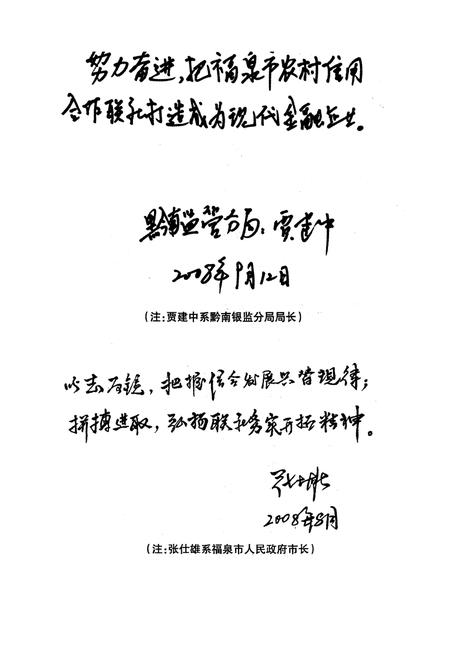 努力奋进，把福泉市农村信用
合作联社打造成为现代金融企业。
黔南监管分局：贾建中
2008年9月12日
（注：贾建中系黔南银监分局局长）
以志为镜，把握信合发展共管规律；
拼搏进取，弘扬联社务实开拓精神。
张仕雄
2008年8月
（注：张仕雄系福泉市人民政府市长）